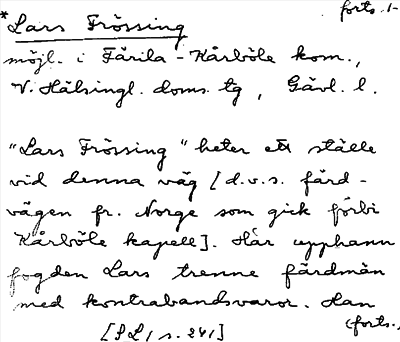 forts. 1-
*Lars Frössing
möjl. i Färila - Kårböle kom.,
V. Hälsingl. doms. tg, Gävl. l.
"Lars Frössing" heter ett ställe
vid denna väg [d.v.s. färd-
vägen fr. Norge som gick förbi
Kårböle kapell]. Här upphann
fogden Lars trenne färdmän
med kontrabandsvaror. Han
[SL, s. 241]
(forts.)